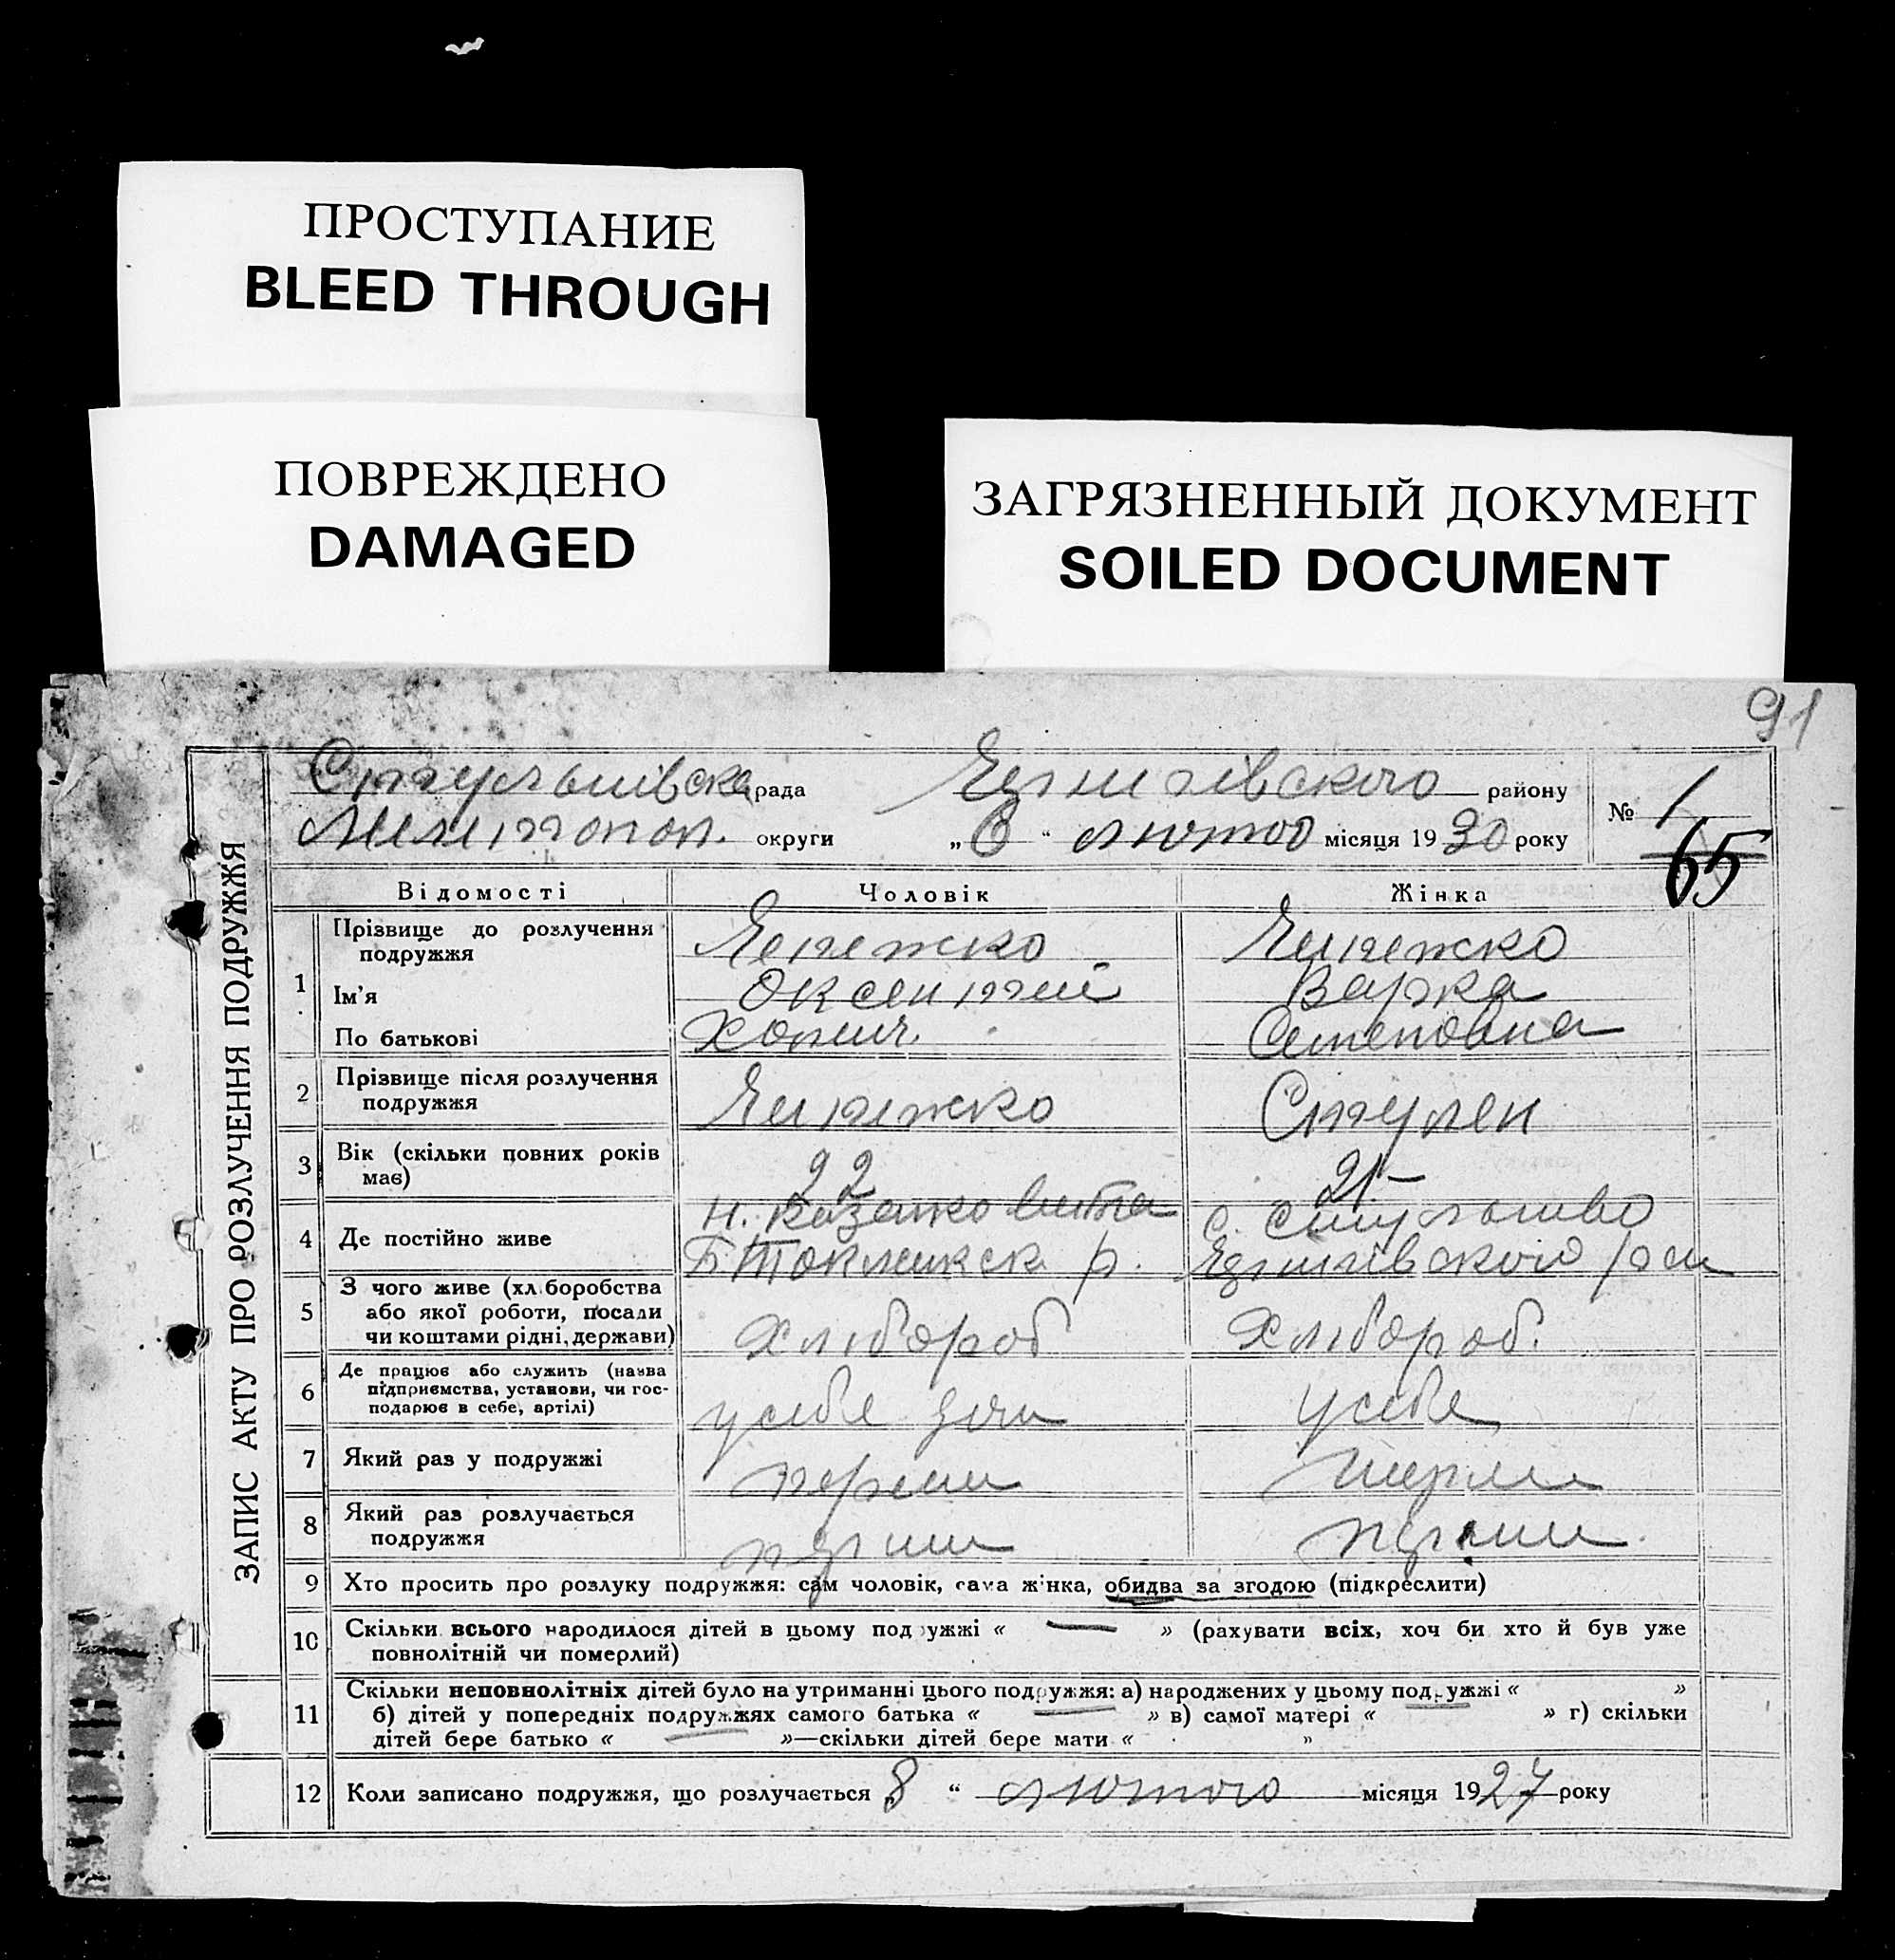 ПРОСТУПАНИЕ
BLEED THROUGH
ПОВРЕЖДЕНО
DAMAGED
ЗАГРЯЗНЕННЫЙ ДОКУМЕНТ
SOILED DOCUMENT
91
ЗАПИС АКТУ ПРО РОЗЛУЧЕННЯ ПОДРУЖЖЯ
рада району № 1
Мелитопол. округи „6“ лютого місяця 1930 року
65
Відомості Чоловік Жінка
1 Прізвище до розлучення подружжя
Ім'я Оксентий Варка
По батькові Степовна
2 Прізвище після розлучення подружжя
3 Вік (скільки повних років має) 22 21-
4 Де постійно живе
5 З чого живе (хліборобства або якої роботи, посади чи коштами рідні, держави) Хлібороб Хлібороб.
6 Де працює або служить (назва підприємства, установи, чи господарює в себе, артілі) усебе усебе
7 Який раз у подружжі перши перши
8 Який раз розлучається подружжя перши перши
9 Хто просить про розлуку подружжя: сам чоловік, сама жінка, обидва за згодою (підкреслити)
10 Скільки всього народилося дітей в цьому подружжі « — » (рахувати всіх, хоч би хто й був уже
повнолітній чи померлий)
11 Скільки неповнолітніх дітей було на утриманні цього подружжя: а) народжених у цьому подружжі « — »
б) дітей у попередніх подружжях самого батька « — » в) самої матері « » г) скільки
дітей бере батько « — »—скільки дітей бере мати « »
12 Коли записано подружжя, що розлучається 8 “ лютого місяця 1927 року